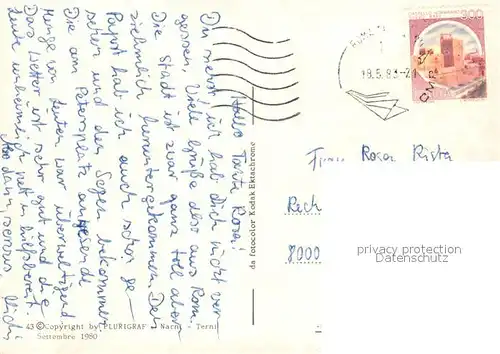 Hallo Tante Rosi!
Du siehst ich hab dich nicht ver-
gessen. Viele Grüße also aus Rom.
Die Stadt ist zwar ganz toll aber
ziehmlich heruntergekommen. Den
Papst hab ich auch schon ge-
sehen und den Segen bekommen.
Die am Petersplatz anwesende
Menge von Leuten war überwältigend
Das Wetter ist sehr gut und die
Leute unheimlich nett u. hilfsbereit.
Also dann, servus,
43 ©Copyright by PLURIGRAF - Narni - Terni
Settembre 1980
da fotocolor Kodak Ektachrome
300
ROMA
18.5.83-21
Frau Rosa
Rech
8000
privacy protection
Datenschutz
www.oldthing.de